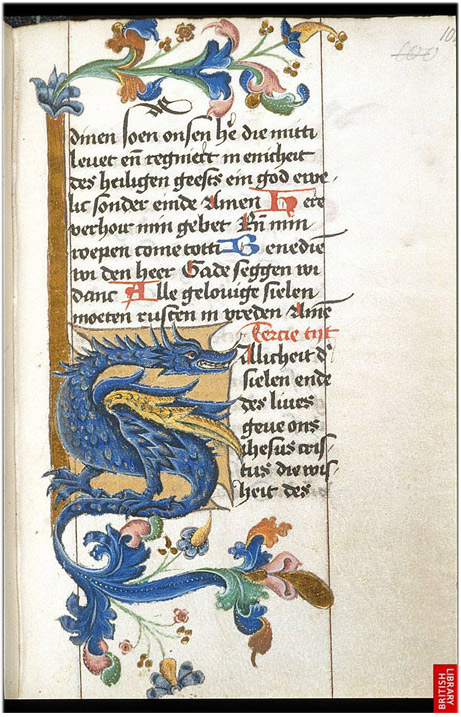 dinen soen onsen he die mitti
levet en regniert in enicheit
des heiligen geests ein god ewe-
lic sonder einde Amen Here
verhoir min gebet En min
roepen come totti Benedie
wi den heer Gade seggen wi
danc Alle gelouige sielen
moeten rusten in vreden Ame
Tercie tijt
allicheit d'
sielen ende
des lives
geve ons
ihesus cris-
tus die wis-
heit des
BRITISH
LIBRARY